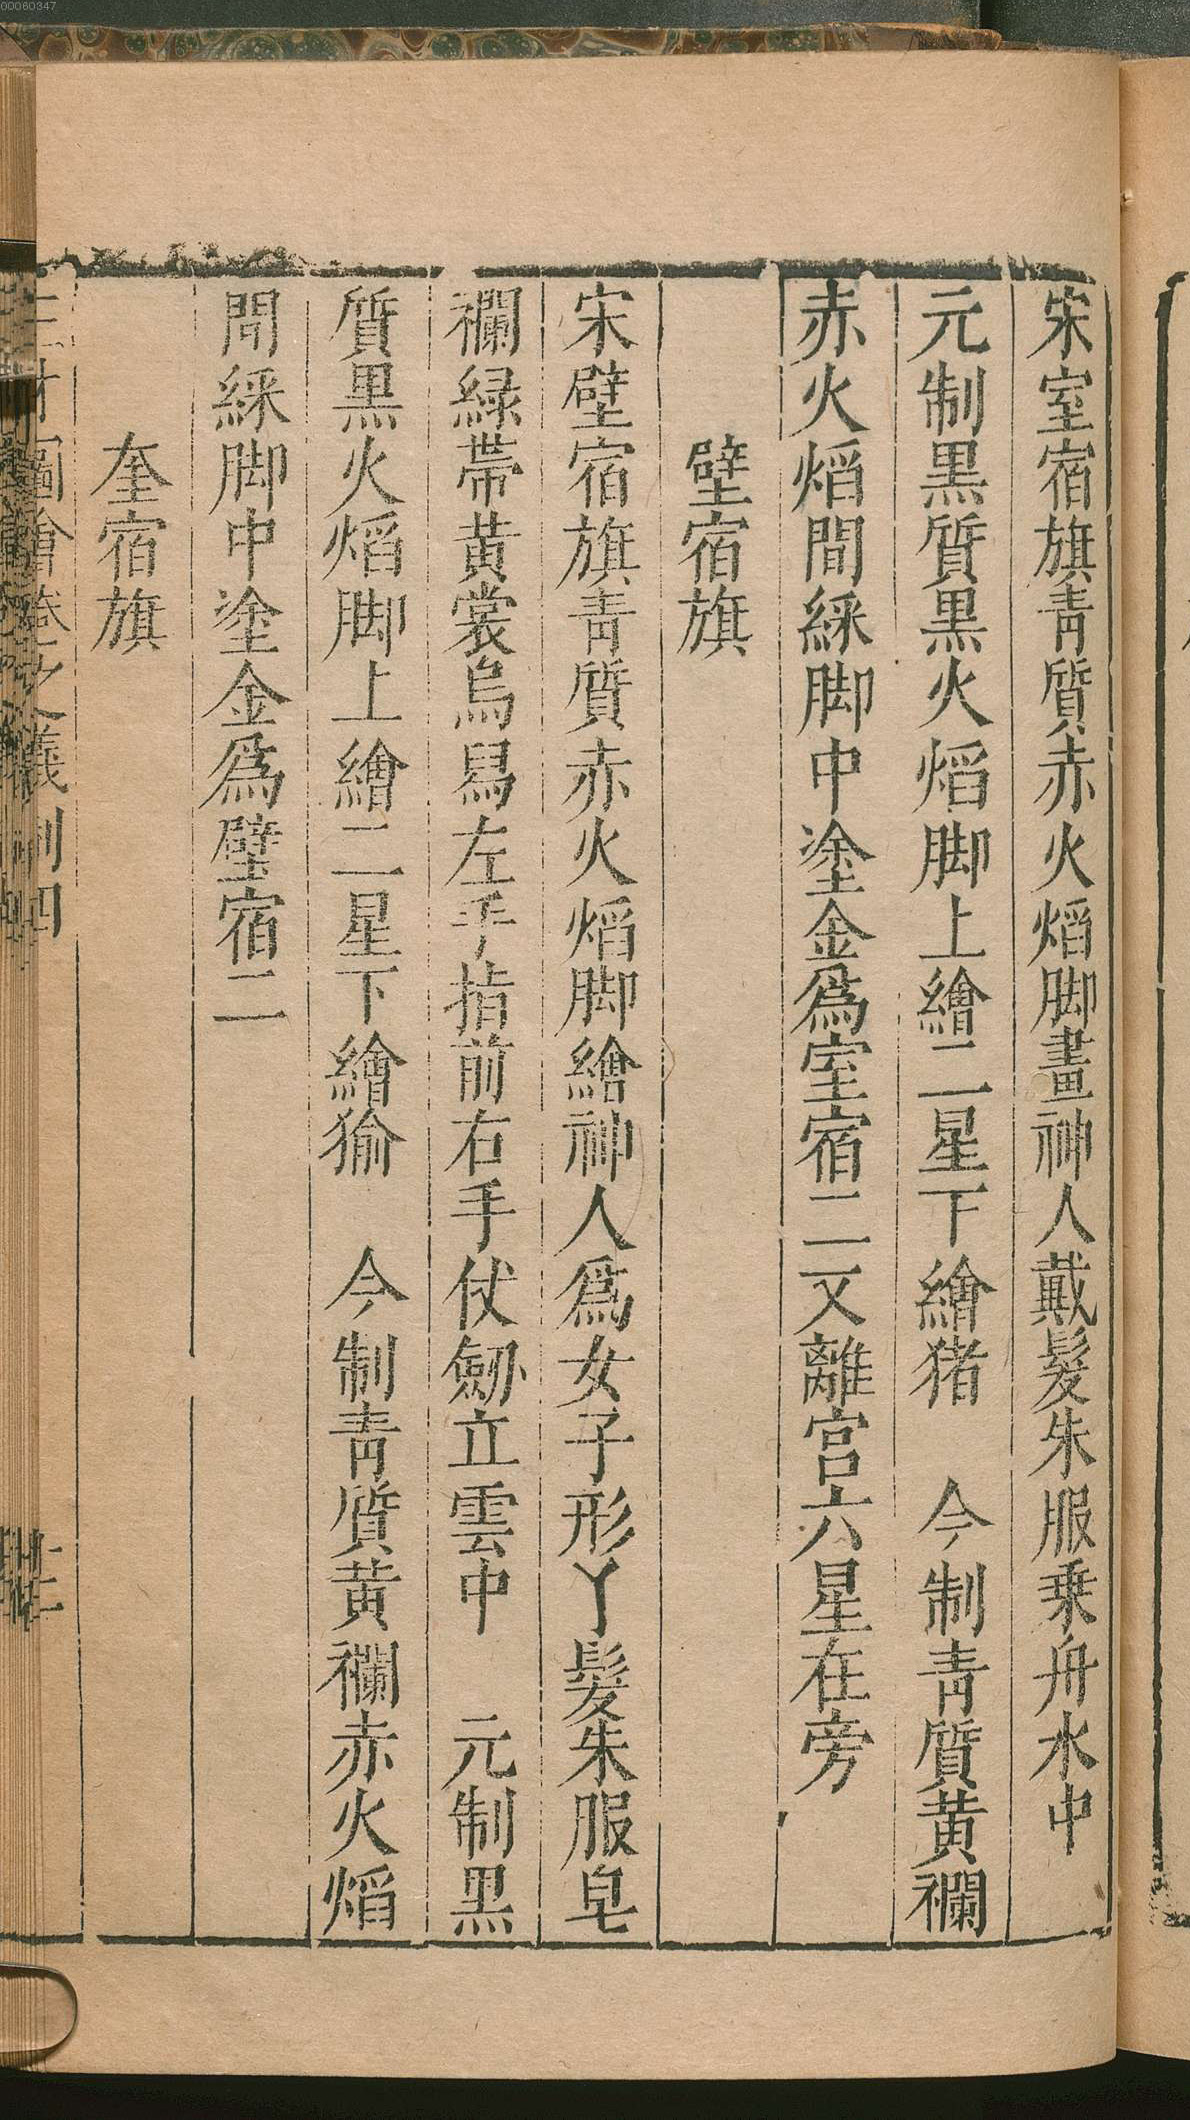 00060347
宋室宿旗靑質赤火熖脚畫神人戴髮朱服乗舟水中
元制黒質黒火熖脚上繪二星下繪猪　今制靑質黄襴
赤火熖間綵脚中塗金爲室宿二又離宫六星在旁
壁宿旗
宋壁宿旗靑質赤火熖脚繪神人爲女子形丫髮朱服皂
襴緑帯黄裳烏舄左手指前右手仗劒立雲中　元制黒
質黒火熖脚上繪二星下繪㺄　今制靑質黄襴赤火熖
間綵脚中塗金爲壁宿二
奎宿旗
三才圖會卷之儀制四